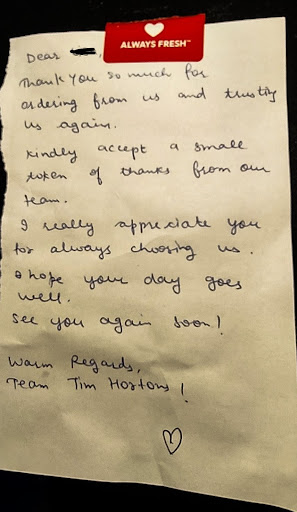 ALWAYS FRESH™
Dear ,
Thank you so much for
ordering from us and trusting
us again.
Kindly accept a small
token of thanks from our
team.
I really appreciate you
for always choosing us.
I hope your day goes
well.
See you again soon!
Warm Regards,
Team Tim Hortons!